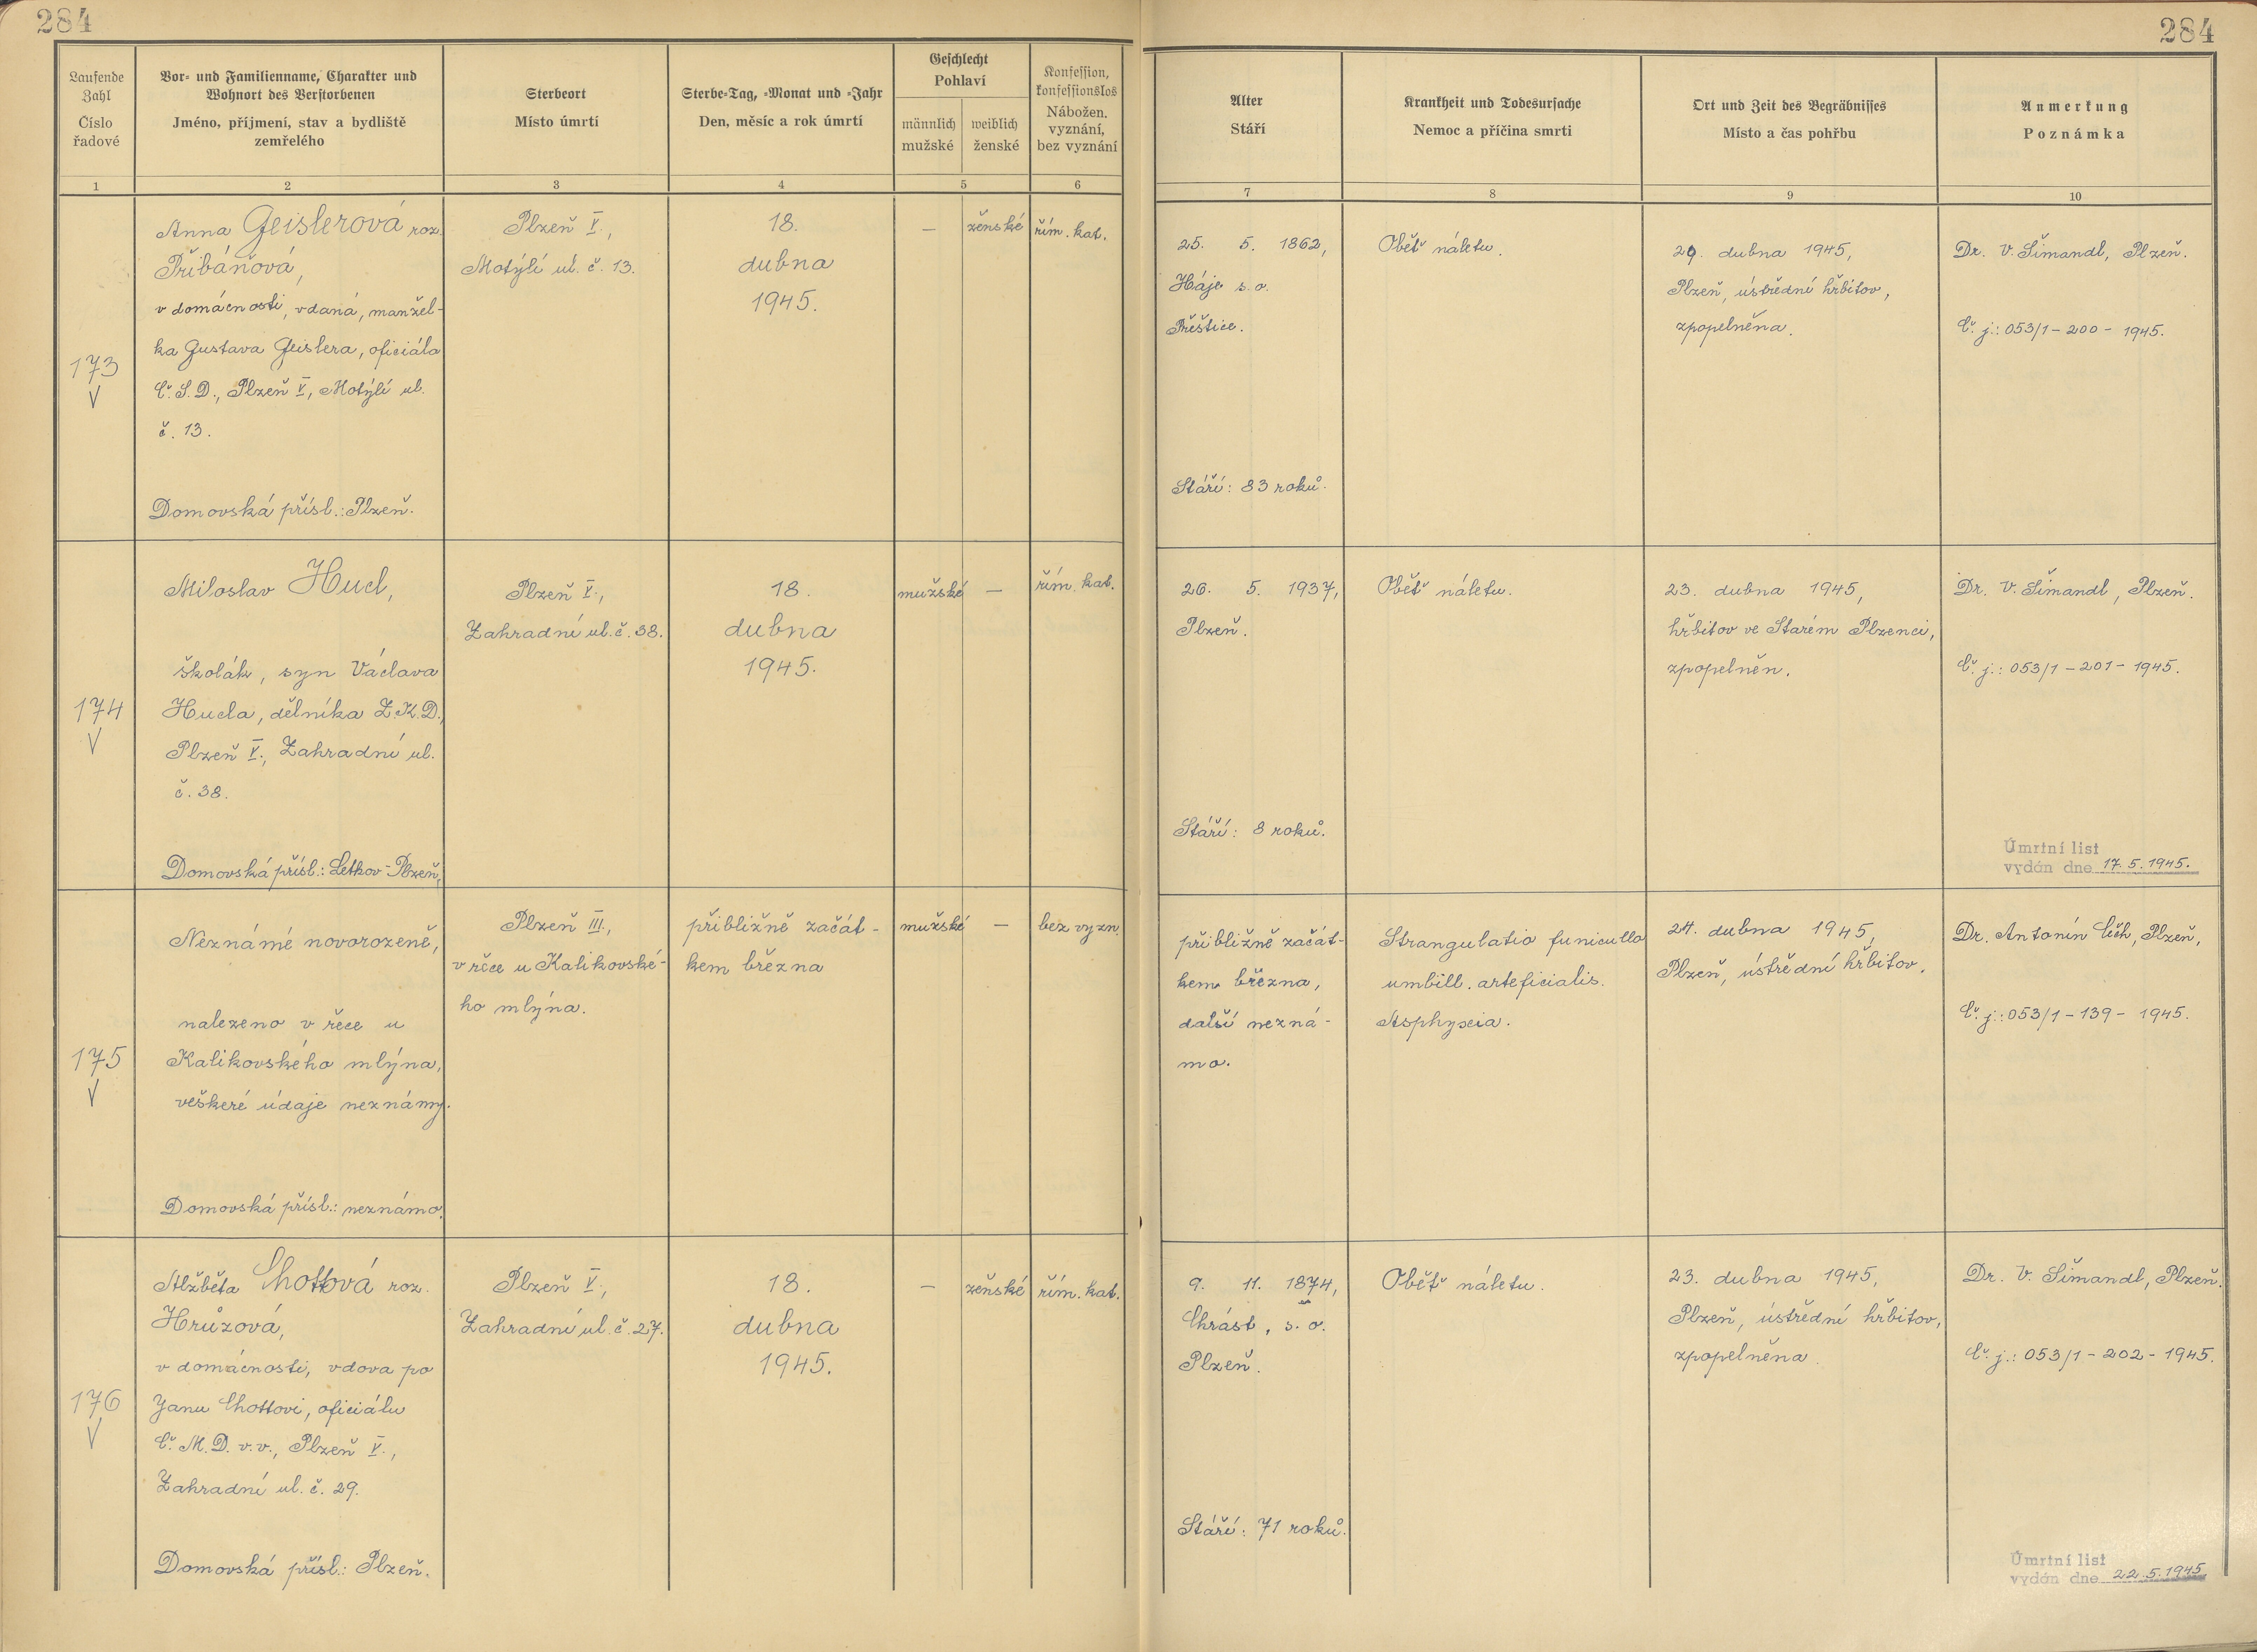 284
284
Laufende
Zahl
Číslo
řadové
Vor- und Familienname, Charakter und
Wohnort des Verstorbenen
Jméno, příjmení, stav a bydliště
zemřelého
Sterbeort
Místo úmrtí
Sterbe-Tag, -Monat und -Jahr
Den, měsíc a rok úmrtí
Geschlecht
Pohlaví
männlich
mužské
weiblich
ženské
Konfession,
konfessionslos
Nábožen.
vyznání,
bez vyznání
Alter
Stáří
Krankheit und Todesursache
Nemoc a příčina smrti
Ort und Zeit des Begräbnisses
Místo a čas pohřbu
Anmerkung
Poznámka
1 2 3 4 5 6 7 8 9 10
173
V
Anna Geislerová roz.
Přibáňová,
v domácnosti, vdaná, manžel-
ka Gustava Geislera, oficiála
Č.S.D., Plzeň V, Motýlí ul.
č. 13.
Domovská přísl.: Plzeň.
Plzeň V.,
Motýlí ul. č. 13.
18.
dubna
1945.
—
ženské
řím. kat.
25. 5. 1862,
Háje s.o.
Přeštice.
Stáří: 83 roků.
Oběť náletu.
29. dubna 1945,
Plzeň, ústřední hřbitov,
zpopelněna.
Dr. V. Šimandl, Plzeň.
Č. j.: 053/1 - 200 - 1945.
174
V
Miloslav Hucl,
školák, syn Václava
Hucla, dělníka Z.K.D.,
Plzeň V., Zahradní ul.
č. 38.
Domovská přísl.: Letkov-Plzeň.
Plzeň V.,
Zahradní ul. č. 38.
18.
dubna
1945.
mužské
—
řím. kat.
26. 5. 1937,
Plzeň.
Stáří: 8 roků.
Oběť náletu.
23. dubna 1945,
hřbitov ve Starém Plzenci,
zpopelněn.
Dr. V. Šimandl, Plzeň.
Č. j.: 053/1 - 201 - 1945.
Úmrtní list
vydán dne 17.5.1945.
175
V
Neznámé novorozeně,
nalezeno v řece u
Kalikovského mlýna,
veškeré údaje neznámy.
Domovská přísl.: neznámo.
Plzeň III.,
v řece u Kalikovské-
ho mlýna.
přibližně začát-
kem března
mužské
—
bez vyzn.
přibližně začát-
kem března,
další nezná-
mo.
Strangulatio funiculla
umbill. arteficialis.
Asphyxia.
24. dubna 1945,
Plzeň, ústřední hřbitov.
Dr. Antonín Čech, Plzeň,
Č. j.: 053/1 - 139 - 1945.
176
V
Alžběta Chottová roz.
Hrůzová,
v domácnosti, vdova po
Janu Chottovi, oficiálu
Č.M.D. v.v., Plzeň V.,
Zahradní ul. č. 29.
Domovská přísl.: Plzeň.
Plzeň V.,
Zahradní ul. č. 27.
18.
dubna
1945.
—
ženské
řím. kat.
9. 11. 1874,
Chrást, s. o.
Plzeň.
Stáří: 71 roků.
Oběť náletu.
23. dubna 1945,
Plzeň, ústřední hřbitov,
zpopelněna.
Dr. V. Šimandl, Plzeň.
Č. j.: 053/1 - 202 - 1945.
Úmrtní list
vydán dne 22.5.1945